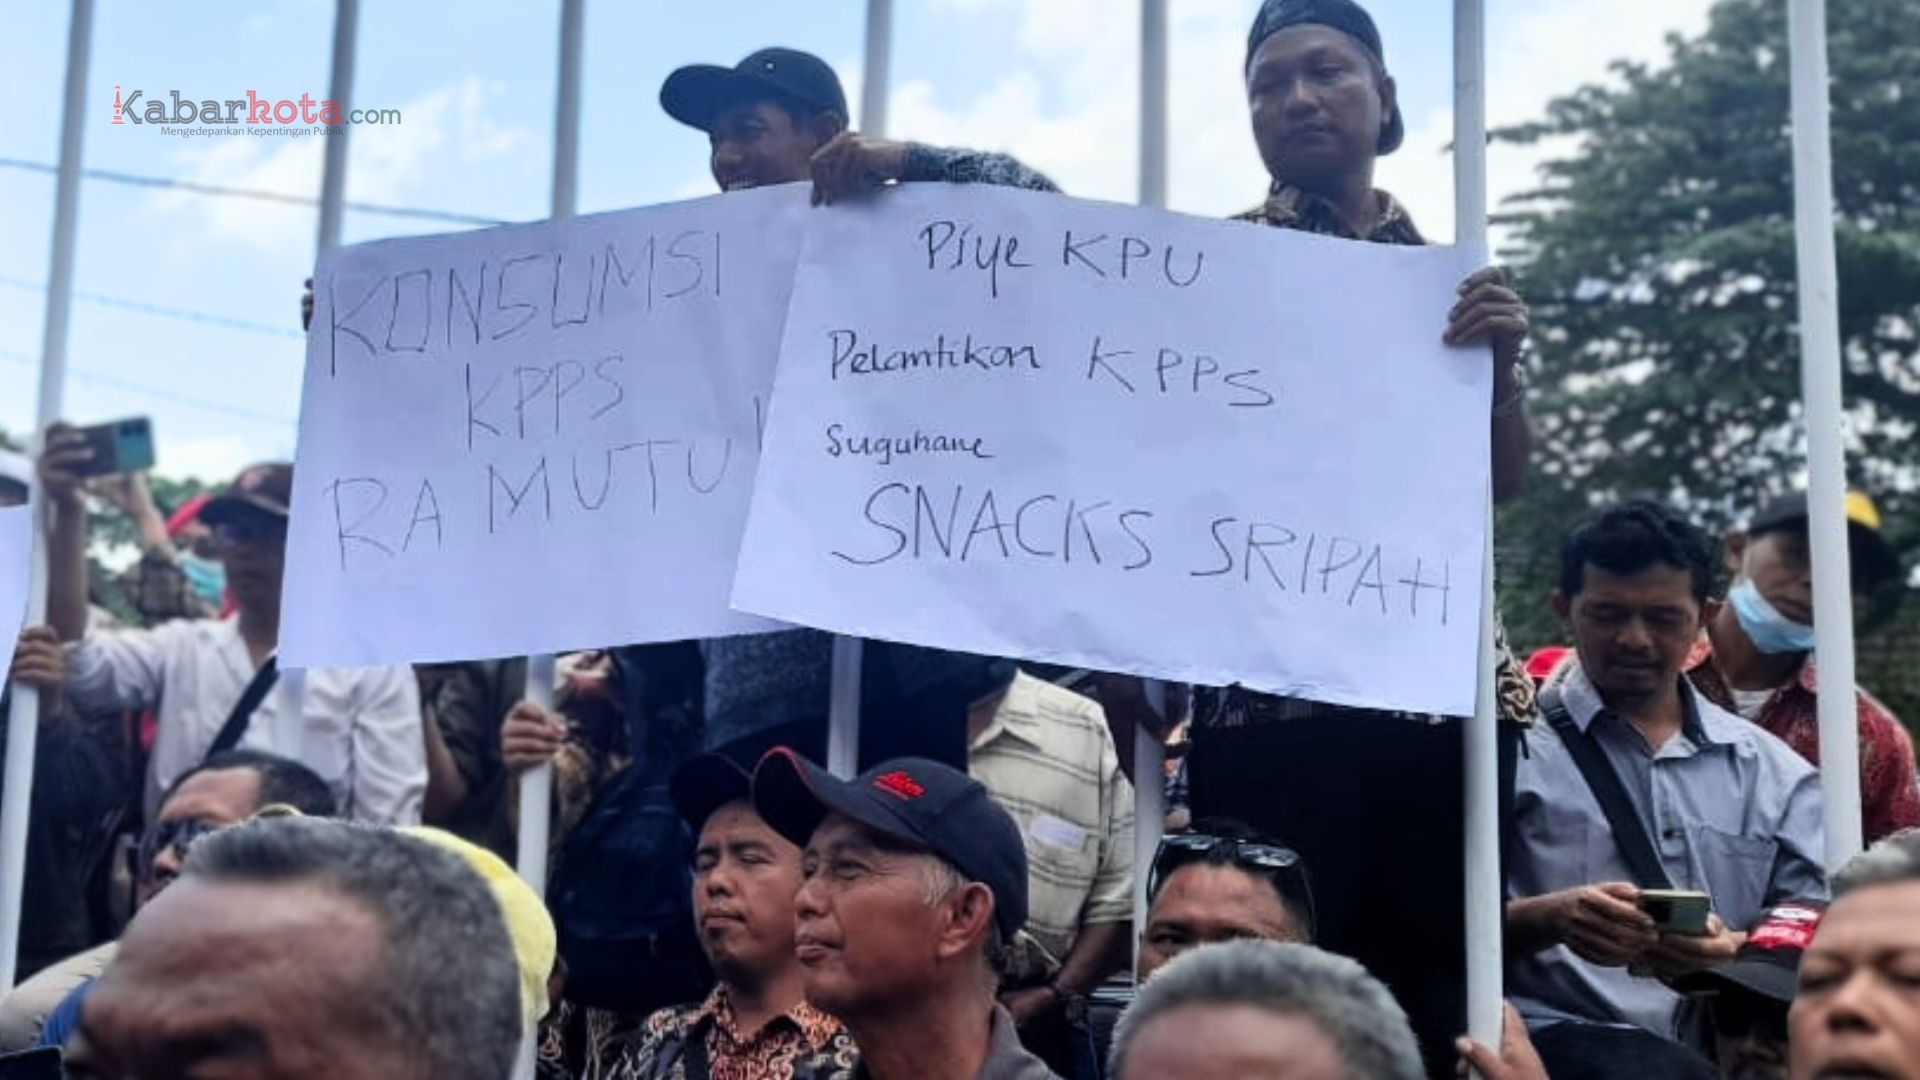 Kabarkota.com
Mengedepankan Kepentingan Publik
KONSUMSI
KPPS
RA MUTU
Piye KPU
Pelantikan KPPS
Suguhane
SNACKS SRIPAH